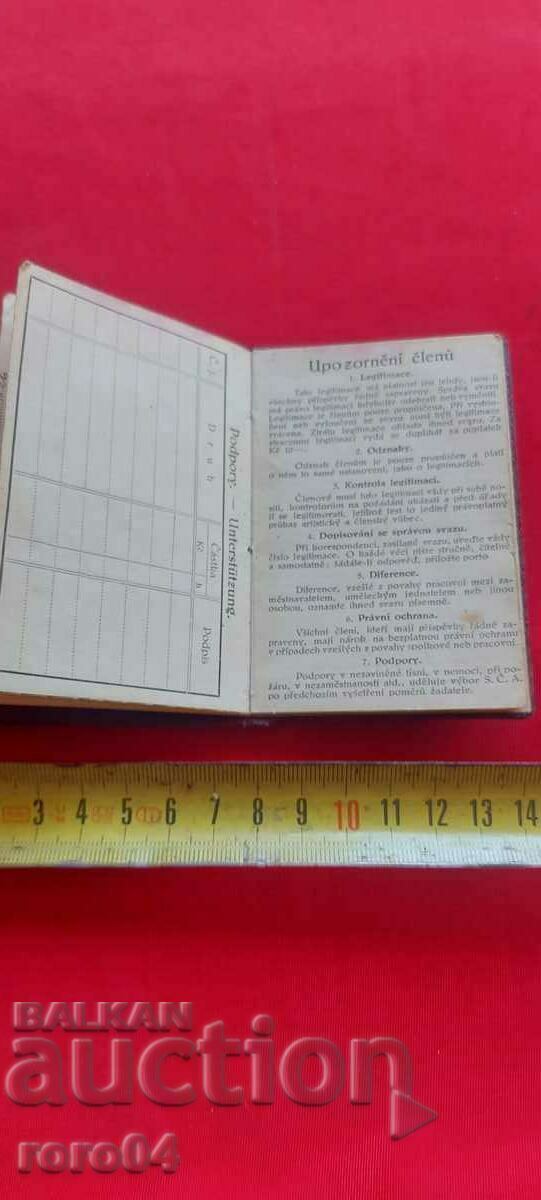 Podpory. — Unterstützung.
Č. j.
Druh
Částka
Kč h
Podpis
Upozornění členů
1. Legitimace.
Tato legitimace má platnost jen tehdy, jsou-li
všechny příspěvky řádně zapraveny. Správa svazu
má právo legitimaci kdykoliv odebrati neb vyměniti.
Legitimace je členům pouze propůjčena. Při vystou-
pení neb vyloučení ze svazu musí býti legitimace
vrácena. Ztrátu legitimace ohlaste ihned svazu. Za
ztracenou legitimaci vydá se duplikát za poplatek
Kč 10—.
2. Odznaky.
Odznak členům je pouze propůjčen a platí
o něm to samé ustanovení, jako o legitimacích.
3. Kontrola legitimací.
Členové musí tuto legitimaci vždy při sobě no-
siti, kontrolorům na požádání ukázati a před úřady
se jí legitimovati, jelikož jest to jediný právoplatný
průkaz artistický a členský vůbec.
4. Dopisování se správou svazu.
Při korespondenci, zasílané svazu, uveďte vždy
číslo legitimace. O každé věci pište stručně, čitelně
a samostatně; žádáte-li odpověď, přiložte porto.
5. Diference.
Diference, vzešlé z povahy pracovní mezi za-
městnavatelem, uměleckým jednatelem neb jinou
osobou, oznamte ihned svazu písemně.
6. Právní ochrana.
Všichni členi, kteří mají příspěvky řádně za-
praveny, mají nárok na bezplatnou právní ochranu
v případech vzešlých z povahy spolkové neb pracovní.
7. Podpory.
Podpory v nezaviněné tísni, v nemoci, při po-
žáru, v nezaměstnanosti atd., uděluje výbor S. Č. A.
po předchozím vyšetření poměrů žadatele.
3 4 5 6 7 8 9 10 11 12 13 14
BALKAN
auction
roro04